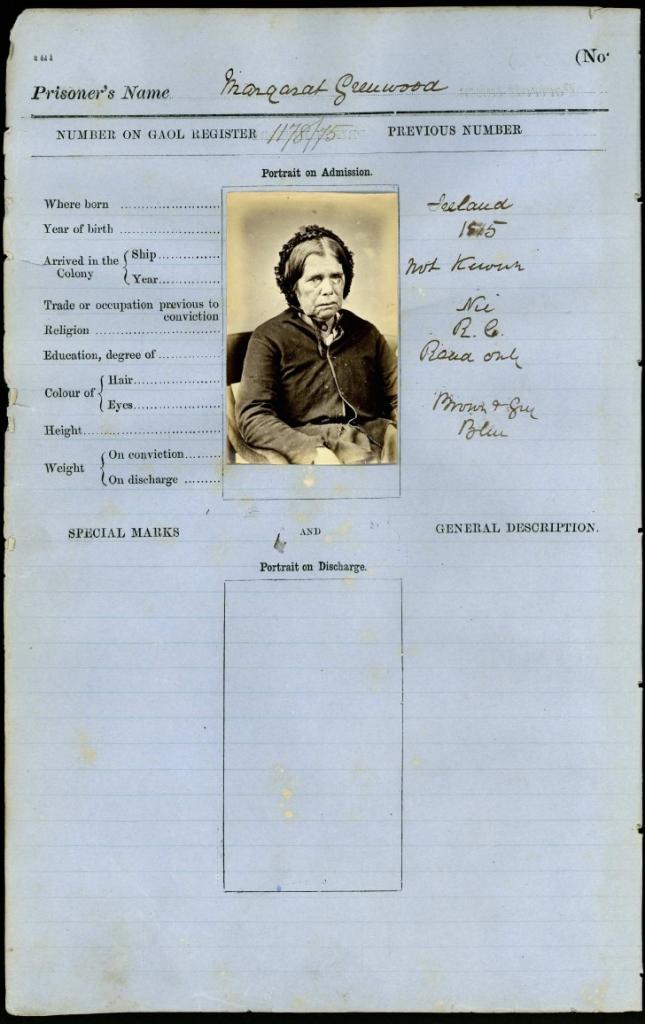 (No.
Prisoner's Name Margarat Greenwood
NUMBER ON GAOL REGISTER 1178/75 PREVIOUS NUMBER
Portrait on Admission.
Where born ........................ Ireland
Year of birth ........................
Arrived in the Colony { Ship ............... Not Known
Year ...............
Trade or occupation previous to conviction Nil
Religion ........................ R. C.
Education, degree of ............... Read only
Colour of { Hair ............... Brown & Grey
Eyes ............... Blue
Height ........................
Weight { On conviction .........
On discharge .........
SPECIAL MARKS AND GENERAL DESCRIPTION.
Portrait on Discharge.